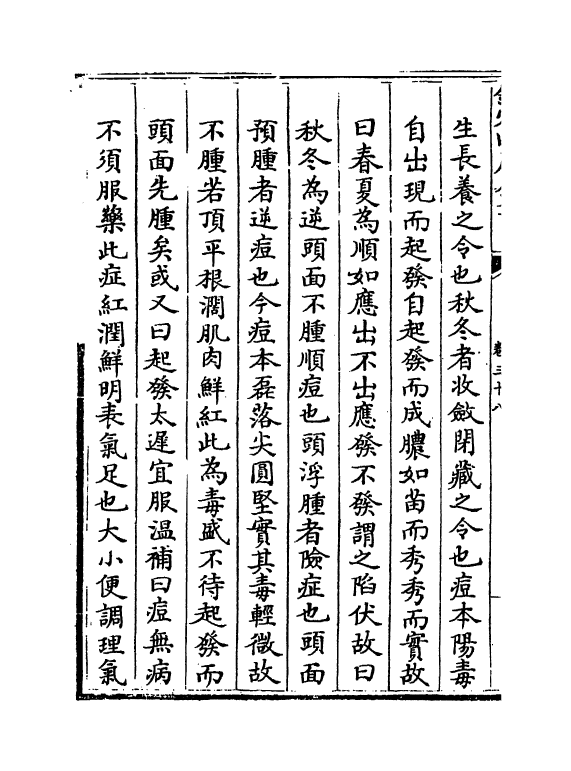 生長養之令也秋冬者收斂閉藏之令也痘本陽毒
自出現而起發自起發而成膿如苗而秀秀而實故
曰春夏為順如應出不出應發不發謂之陷伏故曰
秋冬為逆頭面不腫順痘也頭浮腫者險症也頭面
預腫者逆痘也今痘本磊落尖圓堅實其毒輕微故
不腫若頂平根濶肌肉鮮紅此為毒盛不待起發而
頭面先腫矣或又曰起發太遲宜服温補曰痘無病
不須服藥此症紅潤鮮明表氣足也大小便調理氣
卷三十八